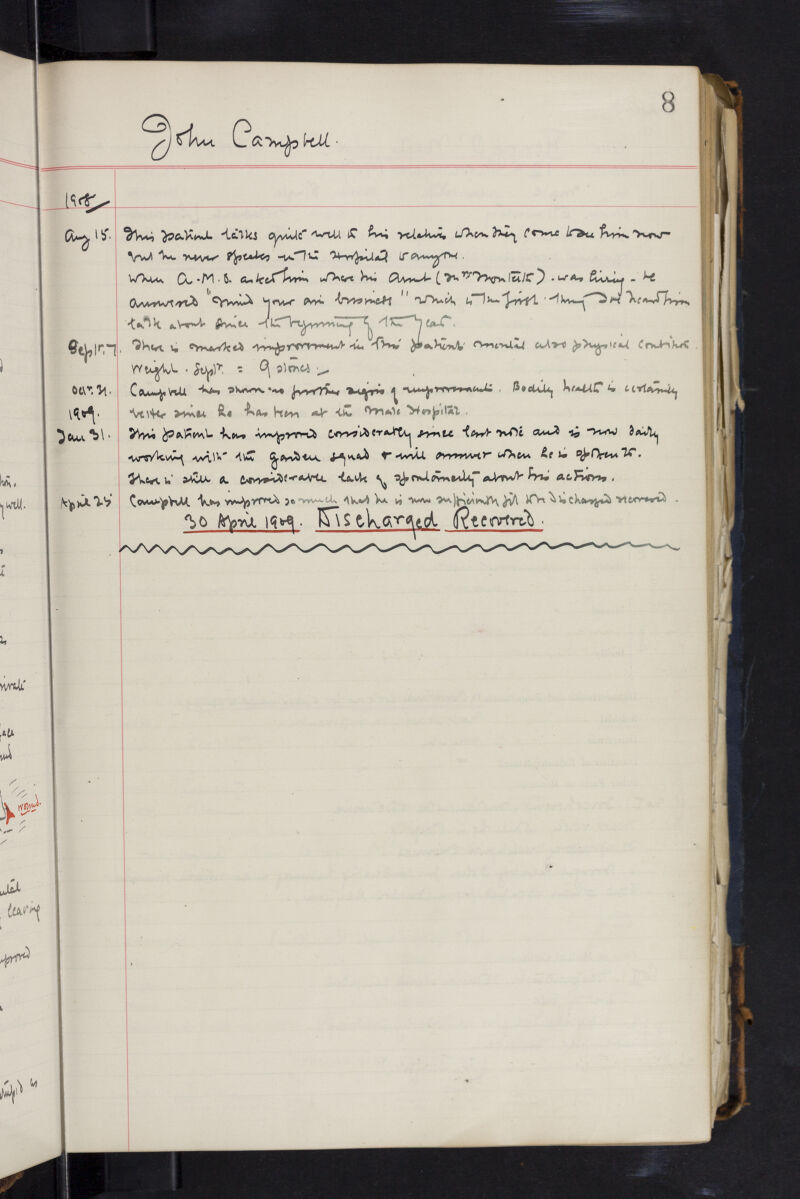 8
John Campbell.
1908
Aug 15. This patient talks quite well to his relatives when they come to see him now
but he never speaks in the Hospital to anyone.
When A.M.O. asked him where his Aunt (Mrs ) was living - he
answered "mind your ain business" which is the first thing I've heard him
talk about since the beginning of the year.
Sept. 7. There is marked improvement in this patient's mental also physical condition.
Weight. Sept. = 9 stones.
Oct. 31. Campbell has shown no further signs of improvement. Bodily health is certainly
1909. better since he has been at the Male Hospital.
Jan 31. This patient has improved considerably since last note and is now daily
working with the garden squad & will answer when he is spoken to.
There is still a considerable lack of spontaneity about his actions.
April 25 Campbell has improved so much that he is now sufficiently fit to be discharged recovered.
30 April 1909. Discharged Recovered.
well.
wound.
leaving
improved